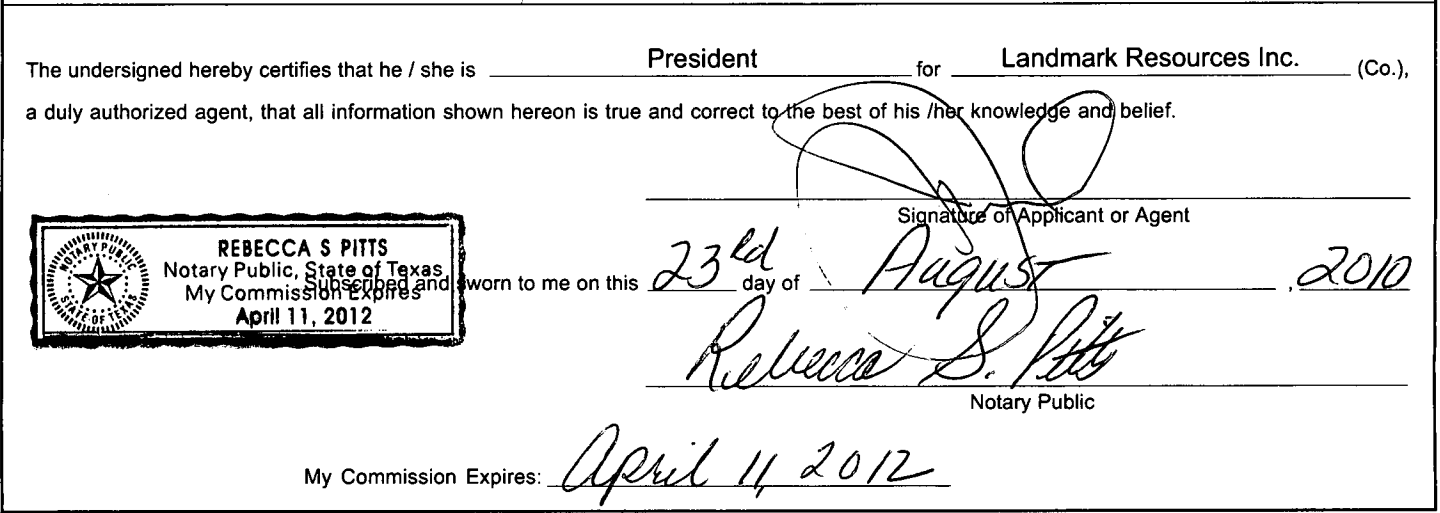 The undersigned hereby certifies that he / she is President for Landmark Resources Inc. (Co.),
a duly authorized agent, that all information shown hereon is true and correct to the best of his /her knowledge and belief.
Signature of Applicant or Agent
NOTARY PUBLIC
STATE OF TEXAS
REBECCA S PITTS
Notary Public, State of Texas
My Commission Expires
April 11, 2012
Subscribed and sworn to me on this 23rd day of August , 2010
Rebecca S. Pitts
Notary Public
My Commission Expires: April 11, 2012